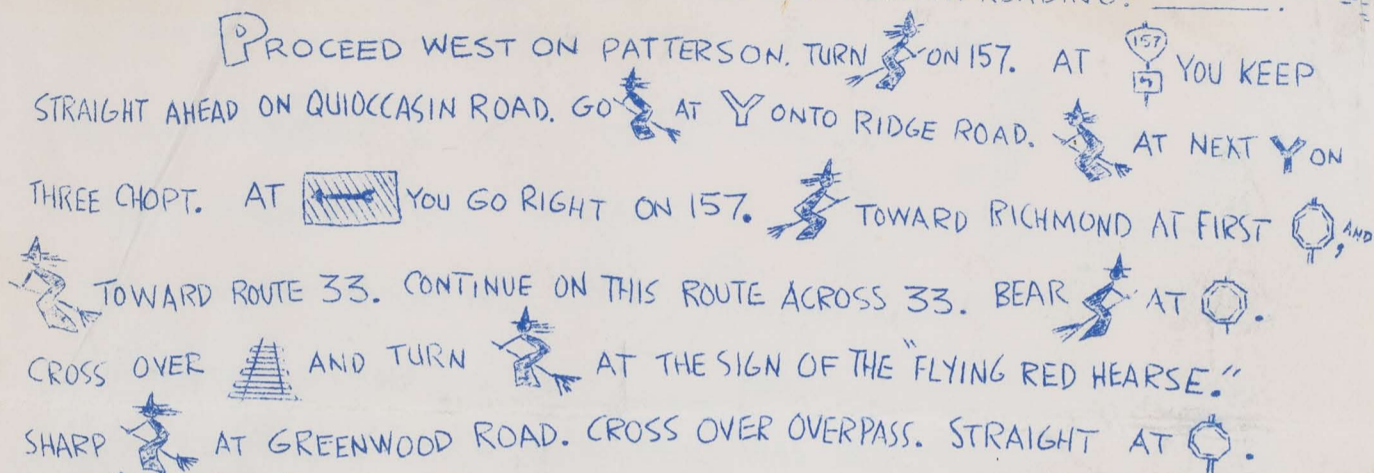 PROCEED WEST ON PATTERSON. TURN ON 157. AT 157 YOU KEEP
STRAIGHT AHEAD ON QUIOCCASIN ROAD. GO AT Y ONTO RIDGE ROAD. AT NEXT Y ON
THREE CHOPT. AT YOU GO RIGHT ON 157. TOWARD RICHMOND AT FIRST , AND
TOWARD ROUTE 33. CONTINUE ON THIS ROUTE ACROSS 33. BEAR AT .
CROSS OVER AND TURN AT THE SIGN OF THE "FLYING RED HEARSE."
SHARP AT GREENWOOD ROAD. CROSS OVER OVERPASS. STRAIGHT AT .